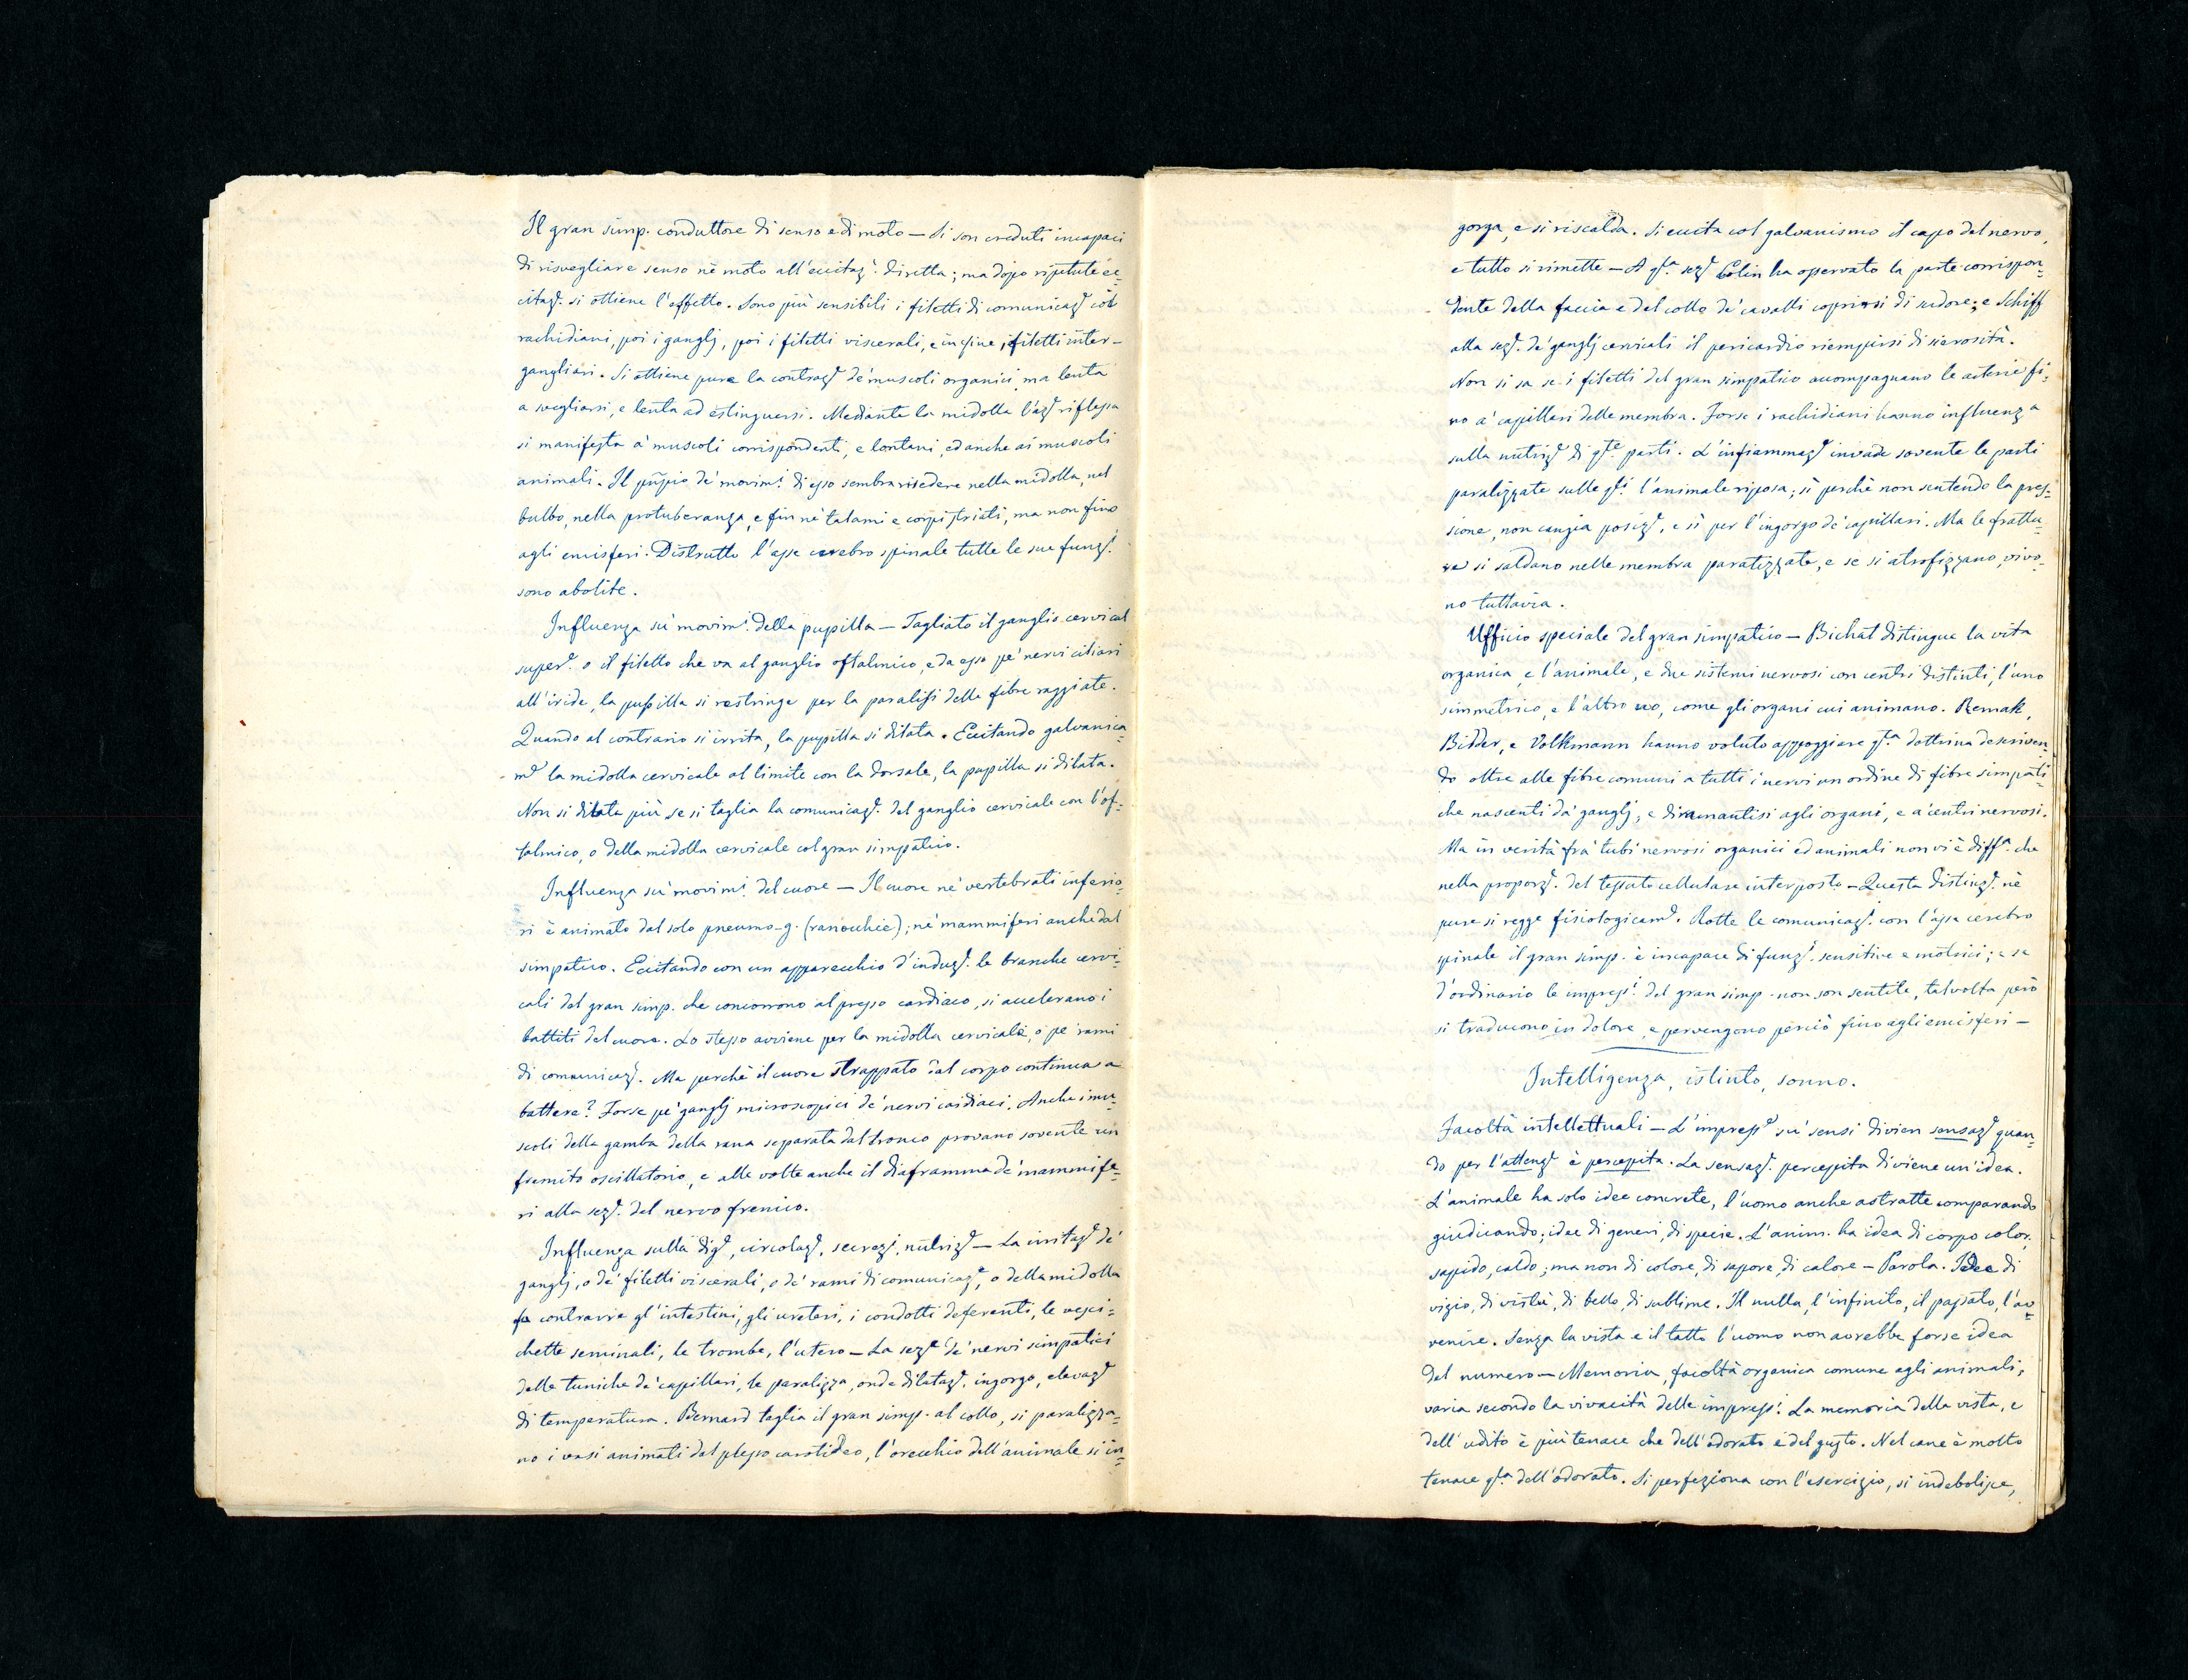 Il gran simp. conduttore di senso e di moto — Si son creduti incapaci
di risvegliare senso nè moto all'eccitaz.e diretta; ma dopo ripetute ec=
citaz.i si ottiene l'effetto. Sono più sensibili i filetti di comunicaz.e coi
rachidiani, poi i ganglj, poi i filetti viscerali, e infine i filetti inter-
gangliari. Si ottiene pure la contraz.e de' muscoli organici, ma lenta
a svegliarsi, e lenta ad estinguersi. Mediante la midolla l'az.e riflessa
si manifesta a' muscoli corrispondenti, e lontani, ed anche ai muscoli
animali. Il pñpio de' movim.i di esso sembra risedere nella midolla, nel
bulbo, nella protuberanza, e fin ne' talami e corpi striati, ma non fino
agli emisferi. Distrutto l'asse cerebro spinale tutte le sue funz.i
sono abolite.
Influenza su' movim.i della pupilla — Tagliato il ganglio cervical
super.e o il filetto che va al ganglio oftalmico, e da esso pe' nervi ciliari
all'iride, la pupilla si restringe per la paralisi delle fibre raggiate.
Quando al contrario si irrita, la pupilla si dilata. Eccitando galvanica=
m.e la midolla cervicale al limite con la dorsale, la pupilla si dilata.
Non si dilata più se si taglia la comunicaz.e del ganglio cervicale con l'of=
talmico, o della midolla cervicale col gran simpatico.
Influenza su' movim.i del cuore — Il cuore ne' vertebrati inferio=
ri è animato dal solo pneumo-g. (ranocchie); ne' mammiferi anche dal
simpatico. Eccitando con un apparecchio d'induz.e le branche cervi=
cali del gran simp. che concorrono al plesso cardiaco, si accelerano i
battiti del cuore. Lo stesso avviene per la midolla cervicale, o pe' rami
di comunicaz.e. Ma perchè il cuore strappato dal corpo continua a
battere? Forse pe' ganglj microscopici de' nervi cardiaci. Anche i mu=
scoli della gamba della rana separata dal tronco provano sovente un
fremito oscillatorio, e alle volte anche il diaframma de' mammife=
ri alla sez.e del nervo frenico.
Influenza sulla dig.e, circolaz.e, secrez.i, nutriz.e — La irritaz.e de'
ganglj, o de' filetti viscerali, o de' rami di comunicaz.e, o della midolla
fa contrarre gl'intestini, gli ureteri, i condotti deferenti, le vesci=
chette seminali, le trombe, l'utero — La sez.e de' nervi simpatici
delle tuniche de' capillari, le paralizza, onde dilataz.e, ingorgo, elevaz.e
di temperatura. Bernard taglia il gran simp. al collo, si paralizza=
no i vasi animati dal plesso carotideo, l'orecchio dell'animale si in=
gorga, e si riscalda. Si eccita col galvanismo il capo del nervo,
e tutto si rimette — A q.ta sez.e Colin ha osservato la parte corrispon=
dente della faccia e del collo de' cavalli coprirsi di sudore; e Schiff
alla sez.e de' ganglj cervicali il pericardio riempirsi di sierosità.
Non si sa se i filetti del gran simpatico accompagnano le arterie fi=
no a' capillari delle membra. Forse i rachidiani hanno influenza
sulla nutriz.e di q.te parti. L'infiammaz.e invade sovente le parti
paralizzate sulle q.li l'animale riposa; sì perchè non sentendo la pres=
sione, non cangia posiz.e, e sì per l'ingorgo de' capillari. Ma le frattu=
re si saldano nelle membra paralizzate, e se si atrofizzano, vivo=
no tuttavia.
Ufficio speciale del gran simpatico — Bichat distingue la vita
organica, e l'animale, e due sistemi nervosi con centri distinti, l'uno
simmetrico, e l'altro no, come gli organi cui animano. Remak,
Bidder, e Volkmann hanno voluto appoggiare q.ta dottrina descriven=
do oltre alle fibre comuni a tutti i nervi un ordine di fibre simpati=
che nascenti da' ganglj, e diramantisi agli organi, e a' centri nervosi.
Ma in verità fra' tubi nervosi organici ed animali non vi è diff.a che
nella proporz.e del tessuto cellulare interposto — Questa distinz.e nè
pure si regge fisiologicam.e. Rotte le comunicaz.i con l'asse cerebro
spinale il gran simp. è incapace di funz.i sensitive e motrici; e se
d'ordinario le impress.i del gran simp. non son sentite, talvolta però
si traducono in dolore, e pervengono perciò fino agli emisferi —
Intelligenza, istinto, sonno.
Facoltà intellettuali — L'impress.e su' sensi divien sensaz.e quan=
do per l'attenz.e è percepita. La sensaz.e percepita diviene un'idea.
L'animale ha solo idee concrete, l'uomo anche astratte comparando
giudicando; idee di generi, di specie. L'anim. ha idea di corpo color.
sapido, caldo; ma non di colore, di sapore, di calore — Parola. Idee di
vizio, di virtù, di bello, di sublime. Il nulla, l'infinito, il passato, l'av=
venire. Senza la vista e il tatto l'uomo non avrebbe forse idea
del numero — Memoria, facoltà organica comune agli animali;
varia secondo la vivacità delle impress.i. La memoria della vista, e
dell'udito è più tenace che dell'odorato e del gusto. Nel cane è molto
tenace q.ta dell'odorato. Si perfeziona con l'esercizio, si indebolisce,